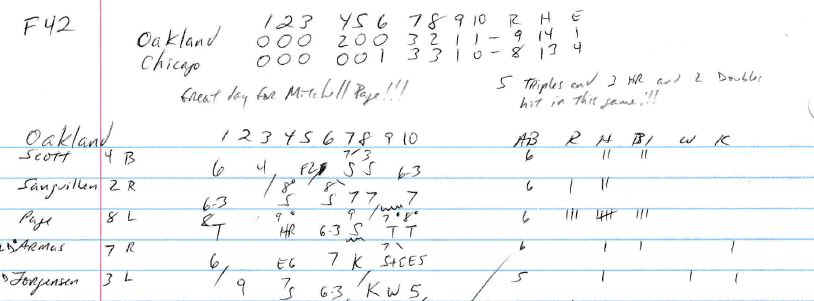 F42
1 2 3 4 5 6 7 8 9 10 R H E
Oakland 0 0 0 2 0 0 3 2 1 1 - 9 14 1
Chicago 0 0 0 0 0 1 3 3 1 0 - 8 13 4
Great day for Mitchell Page!!!
5 Triples and 3 HR and 2 Doubles
hit in this game!!!
Oakland 1 2 3 4 5 6 7 8 9 10 AB R H BI W K
Scott 4 B 6 4 S S 6-3 6 11 11
Sanguillen 2 R 6-3 S S 7 7 7 6 1 11
Page 8 L T HR 6-3 S T T 6 111 111
Armas 7 R 6 E6 7 K 6 1 1 1
Jorgensen 3 L 9 S 6-3 K W 5 5 1 1 1